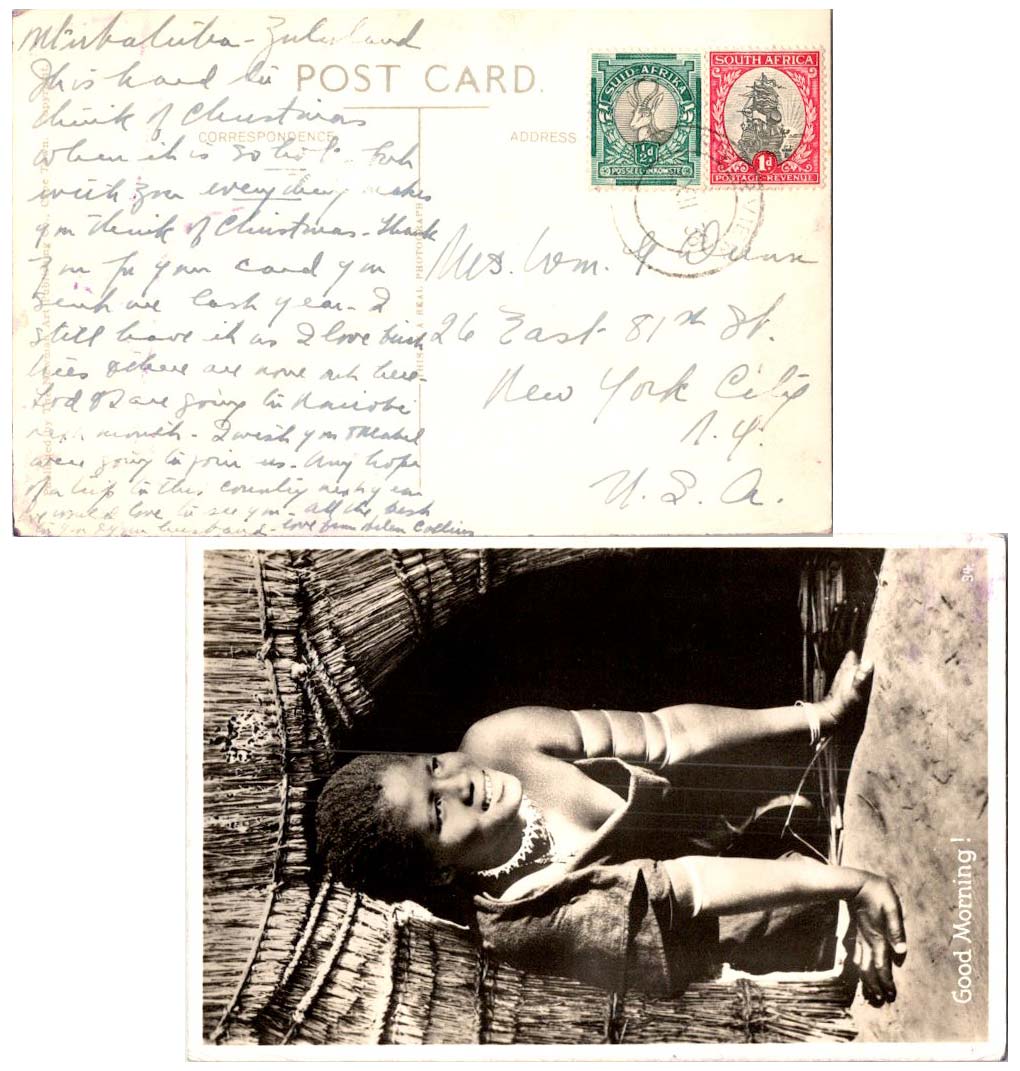 Zululand
POST CARD.
CORRESPONDENCE
ADDRESS
This hard to
think of Christmas
when it is so hot - but
with you everything makes
you think of Christmas - Thank
you for your card you
sent me last year - I
still have it as I love birch
trees & there are none out here -
are going to Nairobi
next month - I wish you & Mabel
were going to join us - Any hope
of a trip to this country next year
We would love to see you - All the best
to you & your husband - love from Helen Collins
Mrs. Wm. G. Dunn
26 East 81st St.
New York City
N.Y.
U.S.A.
THIS IS A REAL PHOTOGRAPH
SUID-AFRIKA
½d
POSSEEL-INKOMSTE
SOUTH AFRICA
1d
POSTAGE-REVENUE
Good Morning!
34.